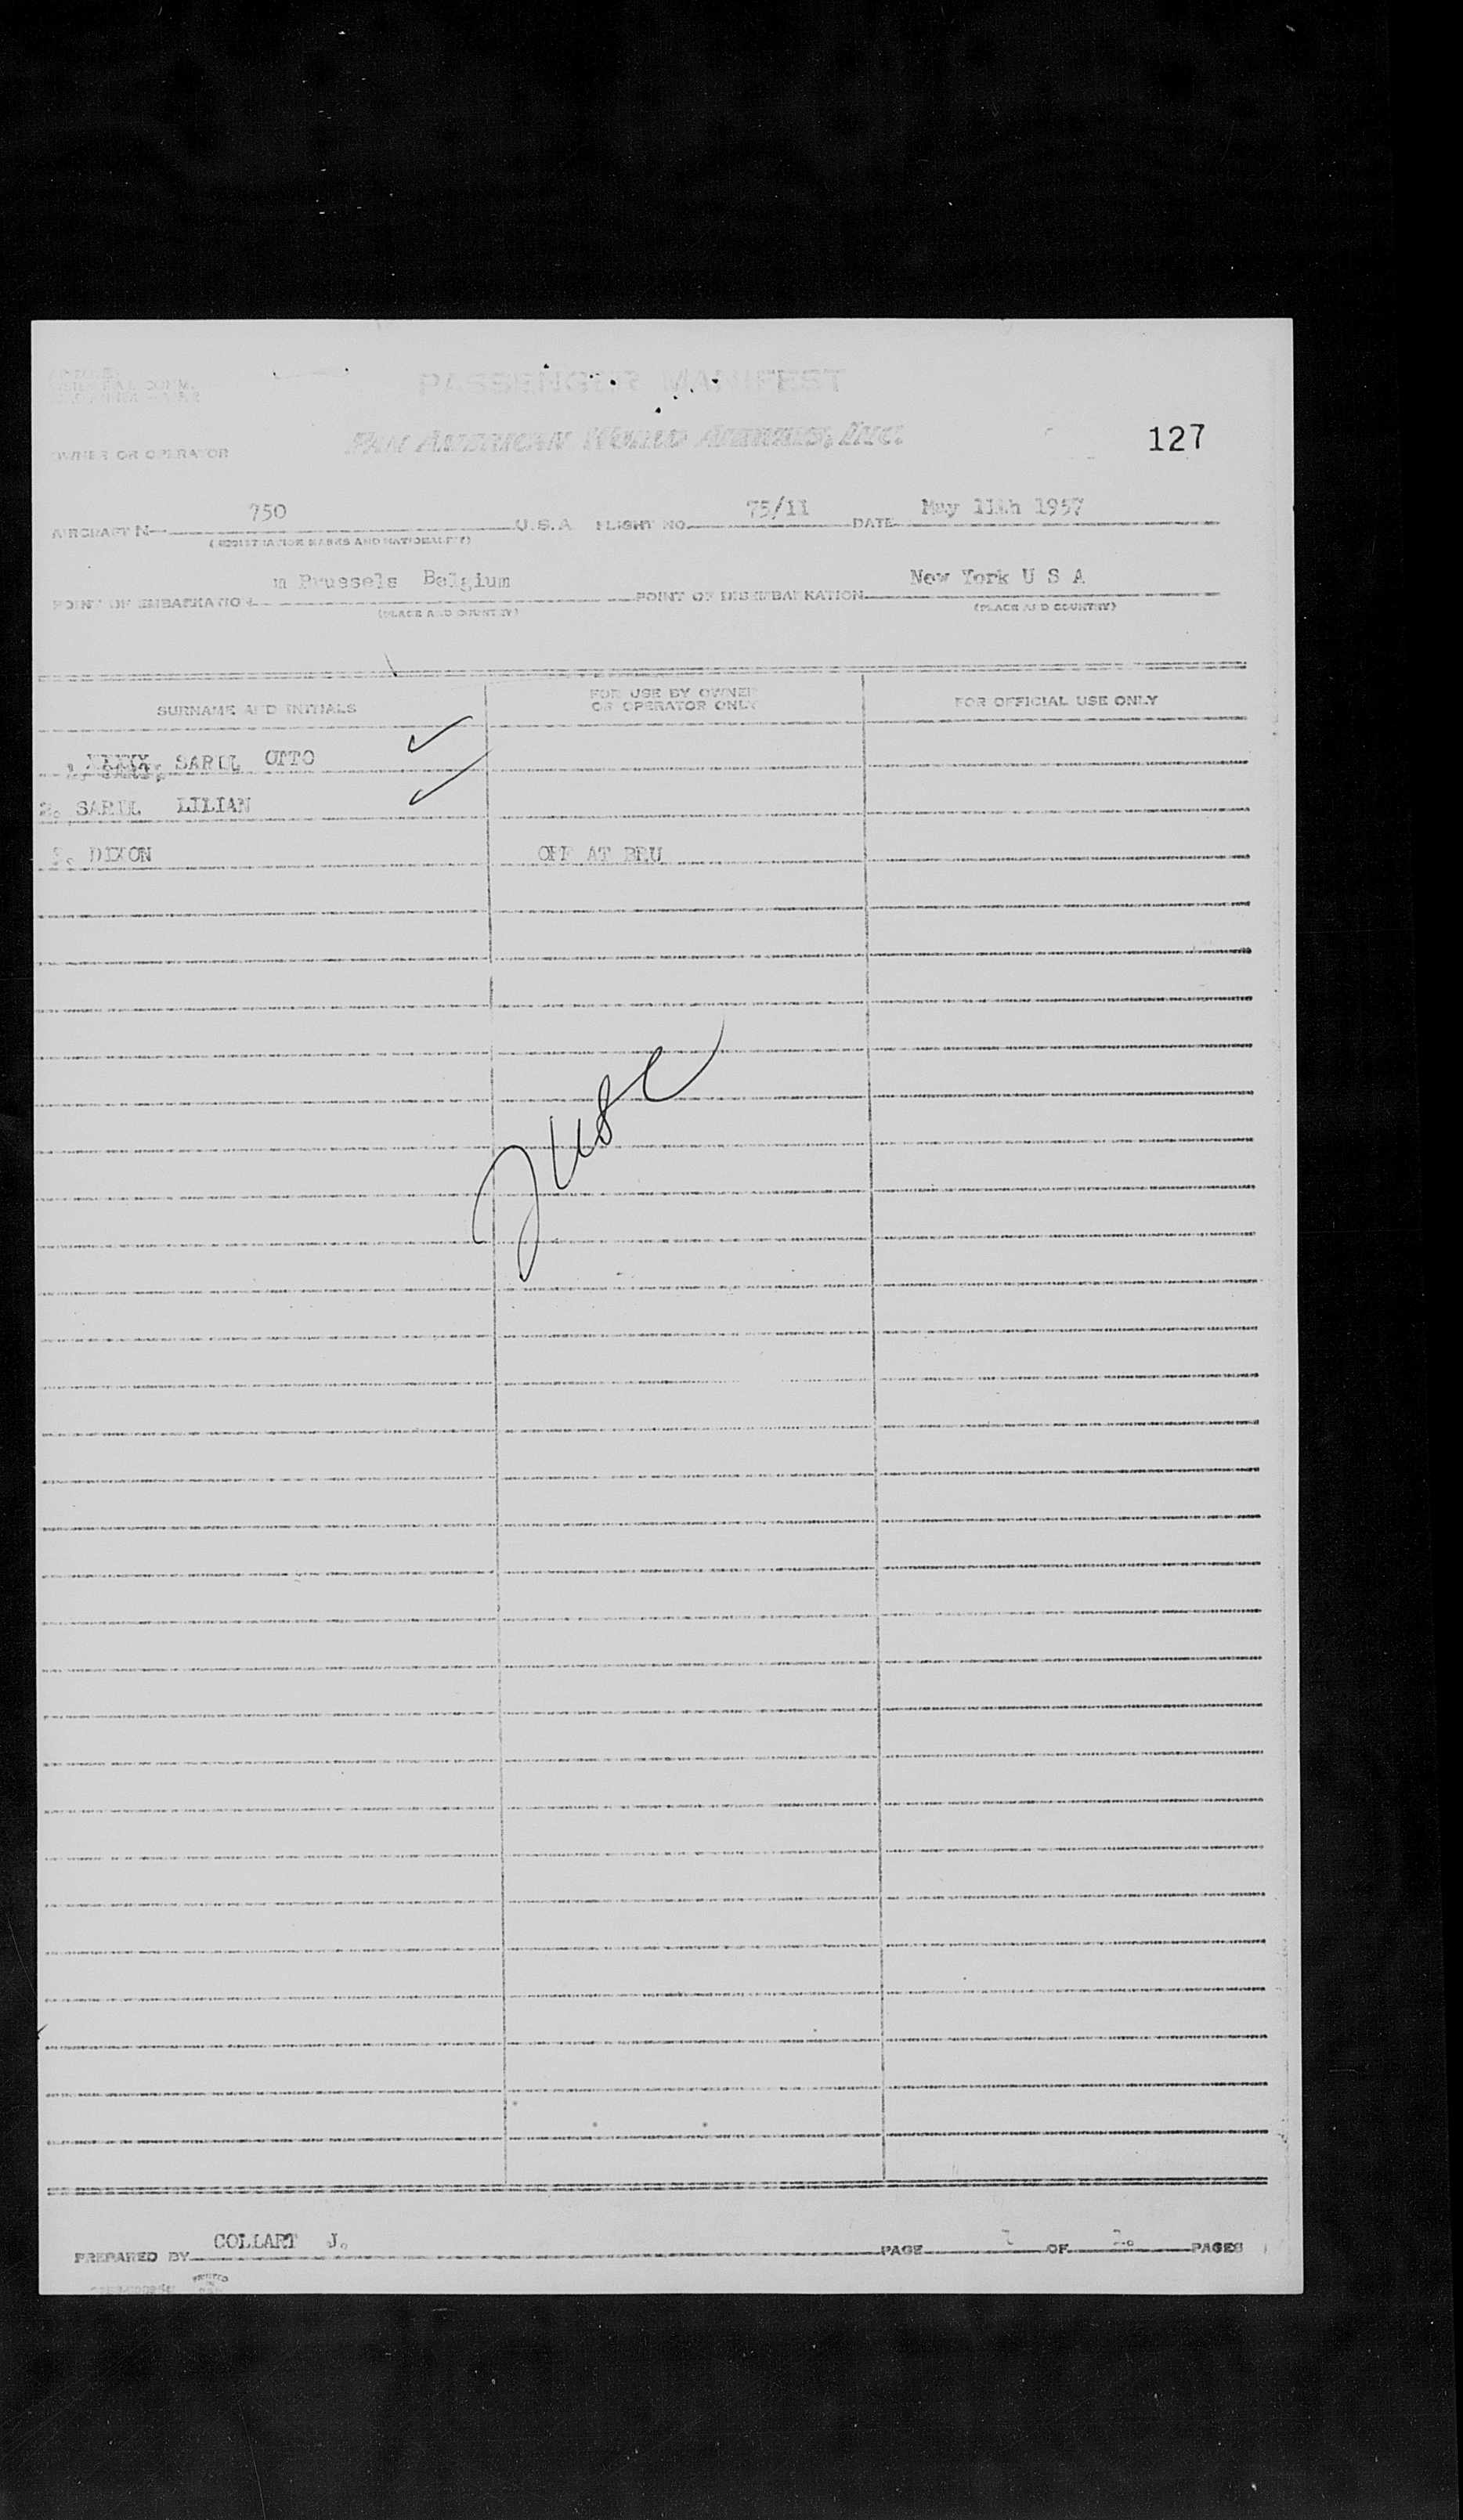 PASSENGER MANIFEST
PAN AMERICAN WORLD AIRWAYS, INC.
127
OWNER OR OPERATOR
AIRCRAFT N 750 U.S.A FLIGHT NO. 75/11 DATE May 11th 1957
(REGISTRATION MARKS AND NATIONALITY)
POINT OF EMBARKATION Brussels Belgium POINT OF DISEMBARKATION New York U S A
(PLACE AND COUNTRY) (PLACE AND COUNTRY)
SURNAME AND INITIALS FOR USE BY OWNER OR OPERATOR ONLY FOR OFFICIAL USE ONLY
1. OTTO
2. LILIAN
3. DIXON OFF AT BRU
PREPARED BY COLLART J. PAGE 1 OF 1. PAGES
PRINTED